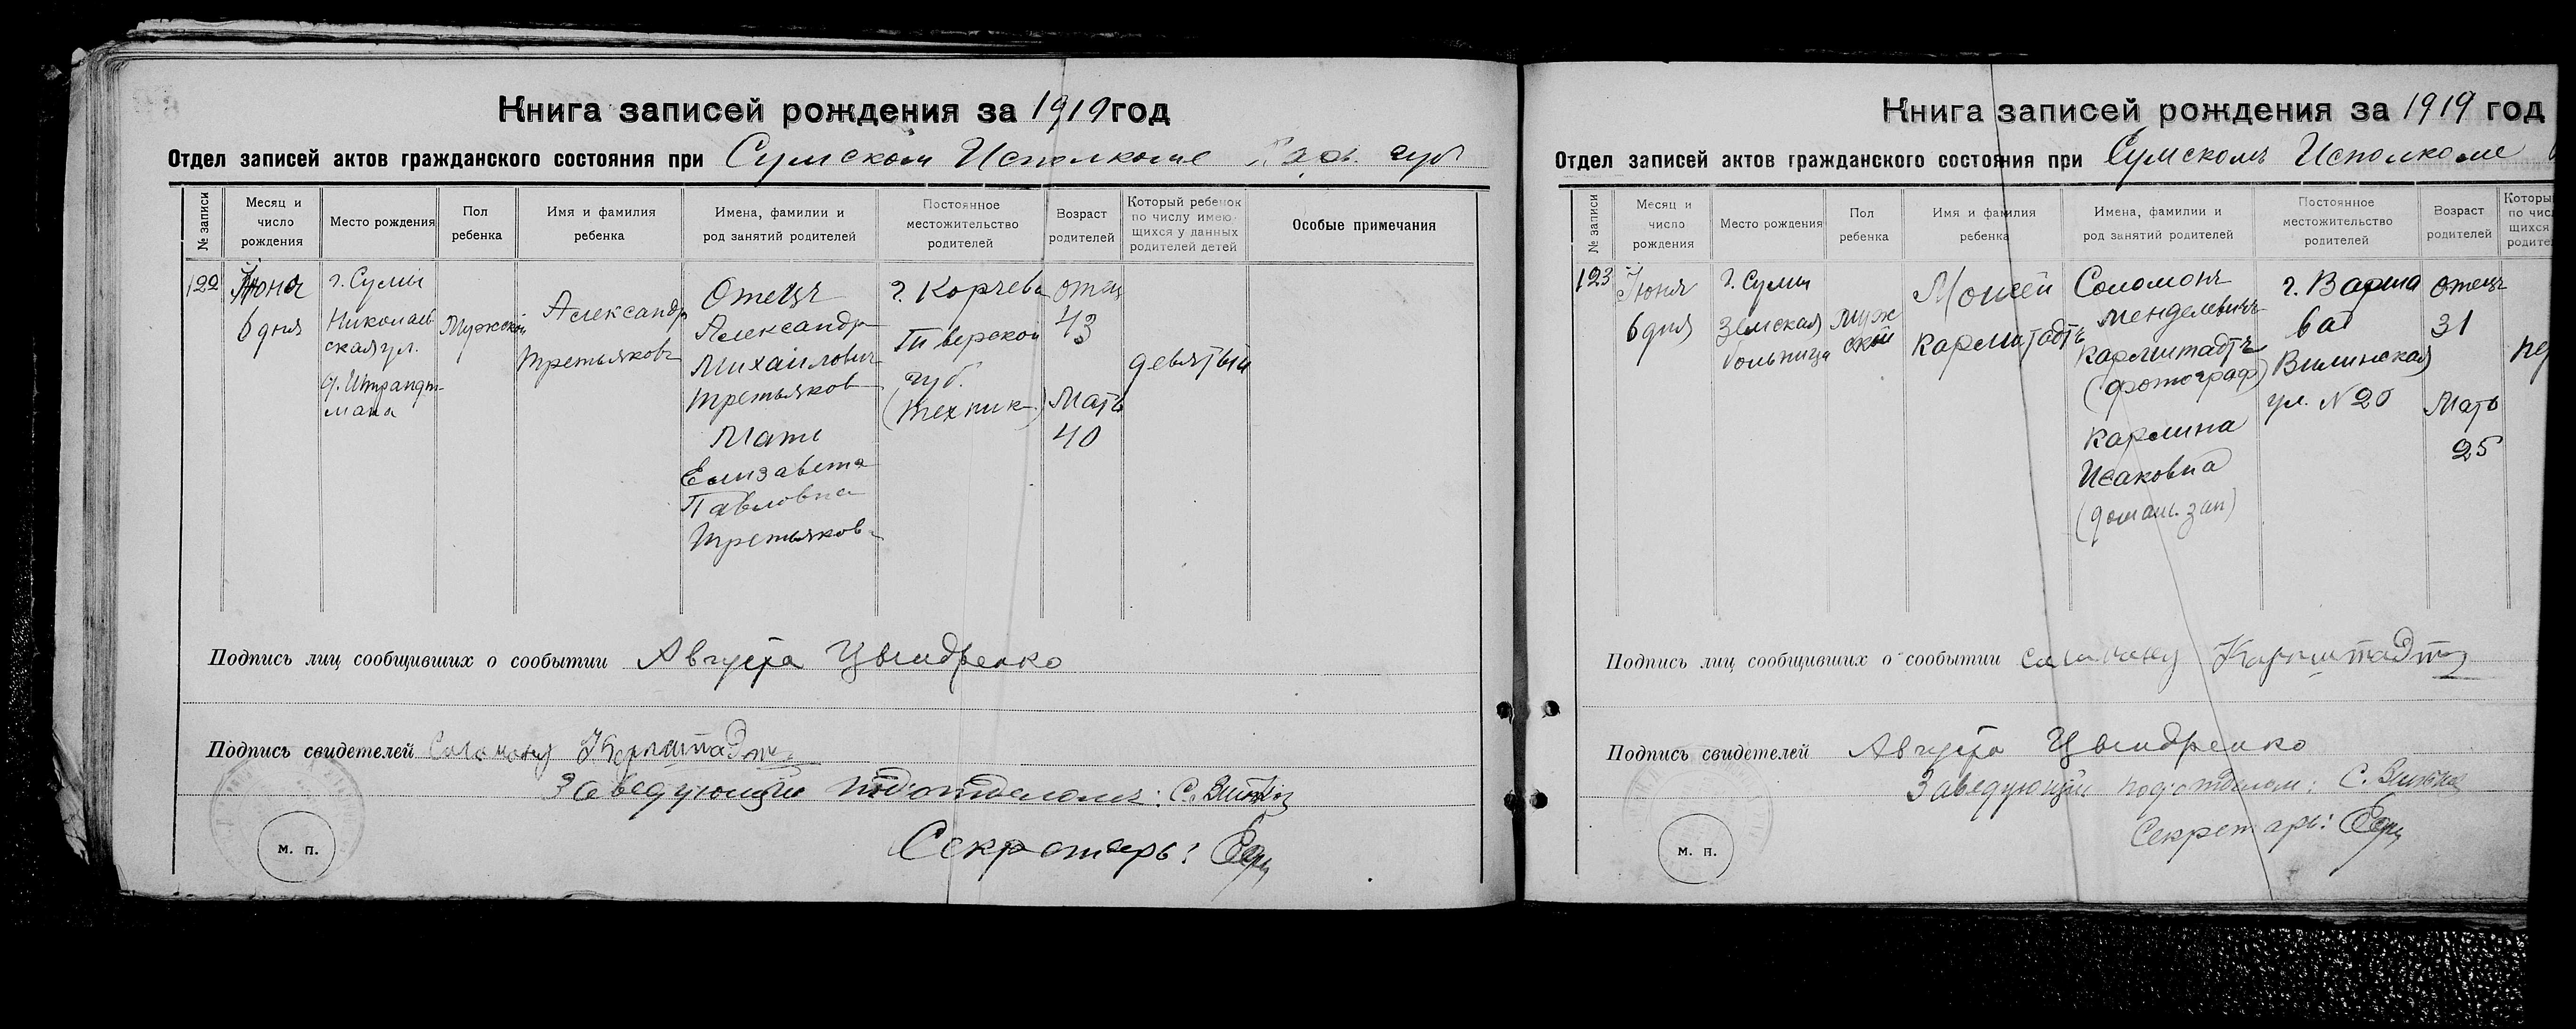 Книга записей рождения за 1919 год
Отдел записей актов гражданского состояния при Сумском Исполкоме Хар. губ
№ записи
Месяц и
число
рождения
Место рождения
Пол
ребенка
Имя и фамилия
ребенка
Имена, фамилии и
род занятий родителей
Постоянное
местожительство
родителей
Возраст
родителей
Который ребенок
по числу имею-
щихся у данных
родителей детей
Особые примечания
122
Июня
6 дня
г. Сумы
Николаев
ская ул.
д. Штрандт-
мана
Мужской
Александр
Третьяковъ
Отецъ
Александр
Михаилович
Третьяков
Мать
Елизавета
Павловна
Третьякова
г. Корчева
Тверской
губ.
(техник)
отец
43
Мать
40
девятый
Подпись лиц сообщивших о сообытии Августа
Подпись свидетелей
Заведующий подотделом: С.
Секретарь:
м. п.
Книга записей рождения за 1919 год
Отдел записей актов гражданского состояния при Сумскомъ Исполкоме
№ записи
Месяц и
число
рождения
Место рождения
Пол
ребенка
Имя и фамилия
ребенка
Имена, фамилии и
род занятий родителей
Постоянное
местожительство
родителей
Возраст
родителей
Которы
по чис
щихся
родите
123
Июня
6 дня
г. Сумы
Земская
больница
Муж
ской
Моисей
Кармштадтъ
Соломонъ
Менделевичъ
Кармштадтъ
(фотограф)
Кармина
Исаковна
(домаш. зан)
г. Варша
ва
Виленская
ул. N 20
отецъ
31
Мать
25
пер
Подпись лиц сообщивших о сообытии
Подпись свидетелей Августа
Заведующий подотделом: С.
Секретарь:
м. п.